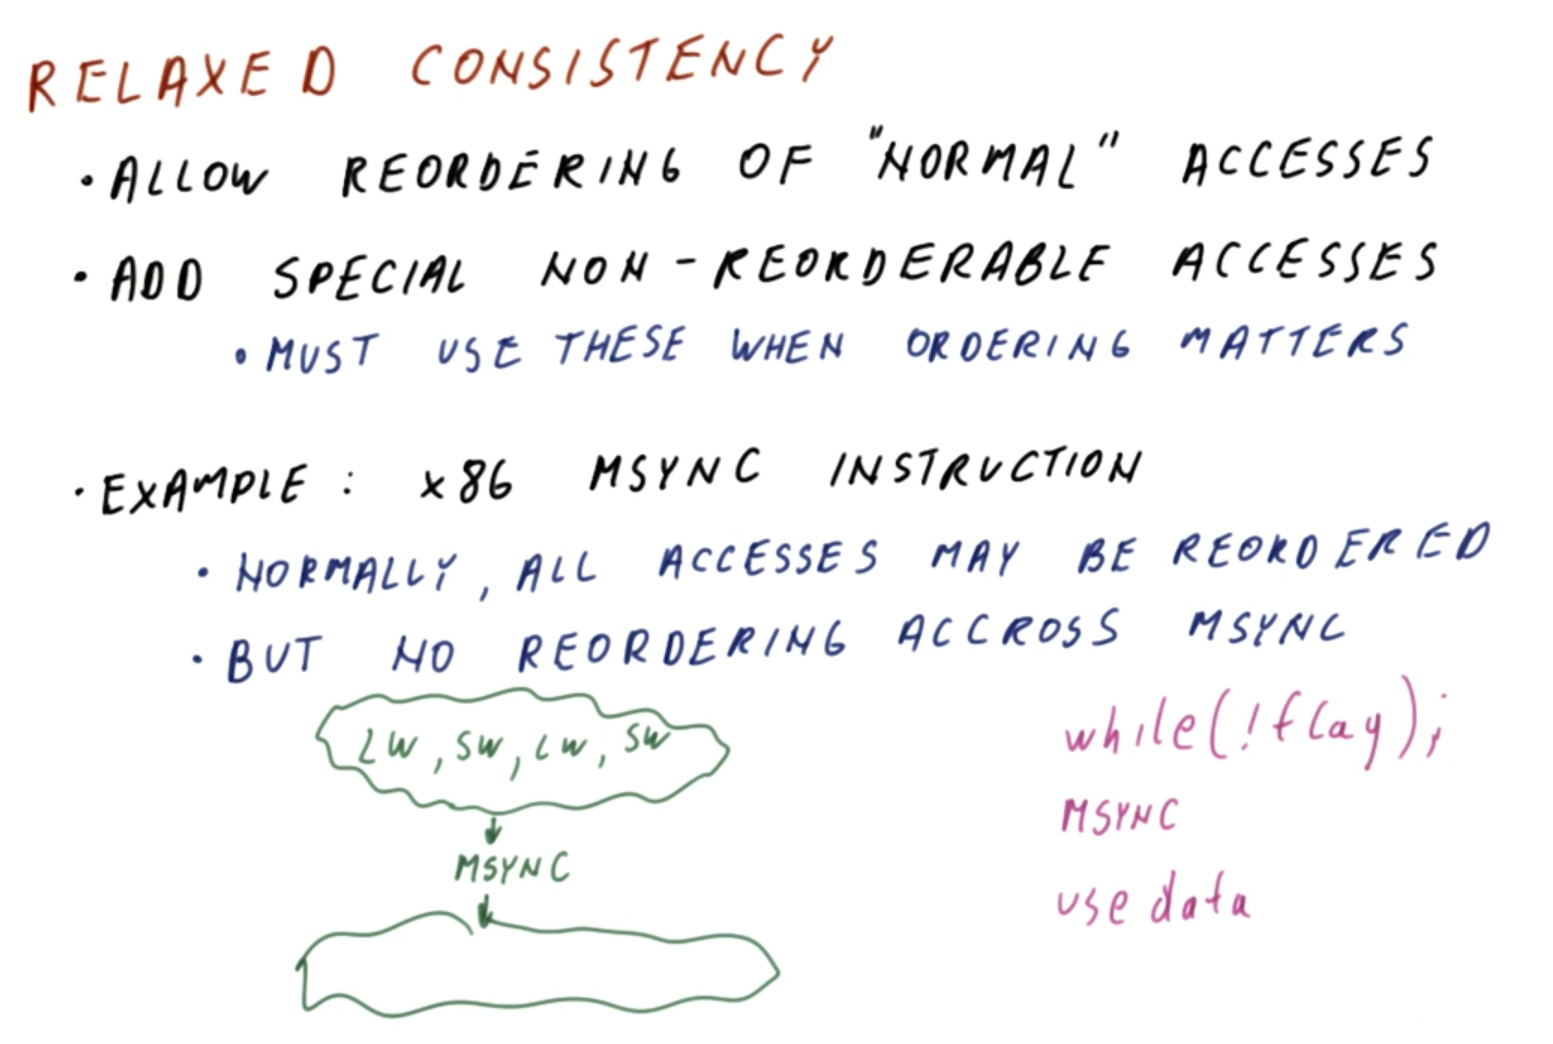 RELAXED CONSISTENCY
• ALLOW REORDERING OF "NORMAL" ACCESSES
• ADD SPECIAL NON-REORDERABLE ACCESSES
• MUST USE THESE WHEN ORDERING MATTERS
• EXAMPLE: x86 MSYNC INSTRUCTION
• NORMALLY, ALL ACCESSES MAY BE REORDERED
• BUT NO REORDERING ACCROSS MSYNC
LW, SW, LW, SW
MSYNC
while(!flag);
MSYNC
use data